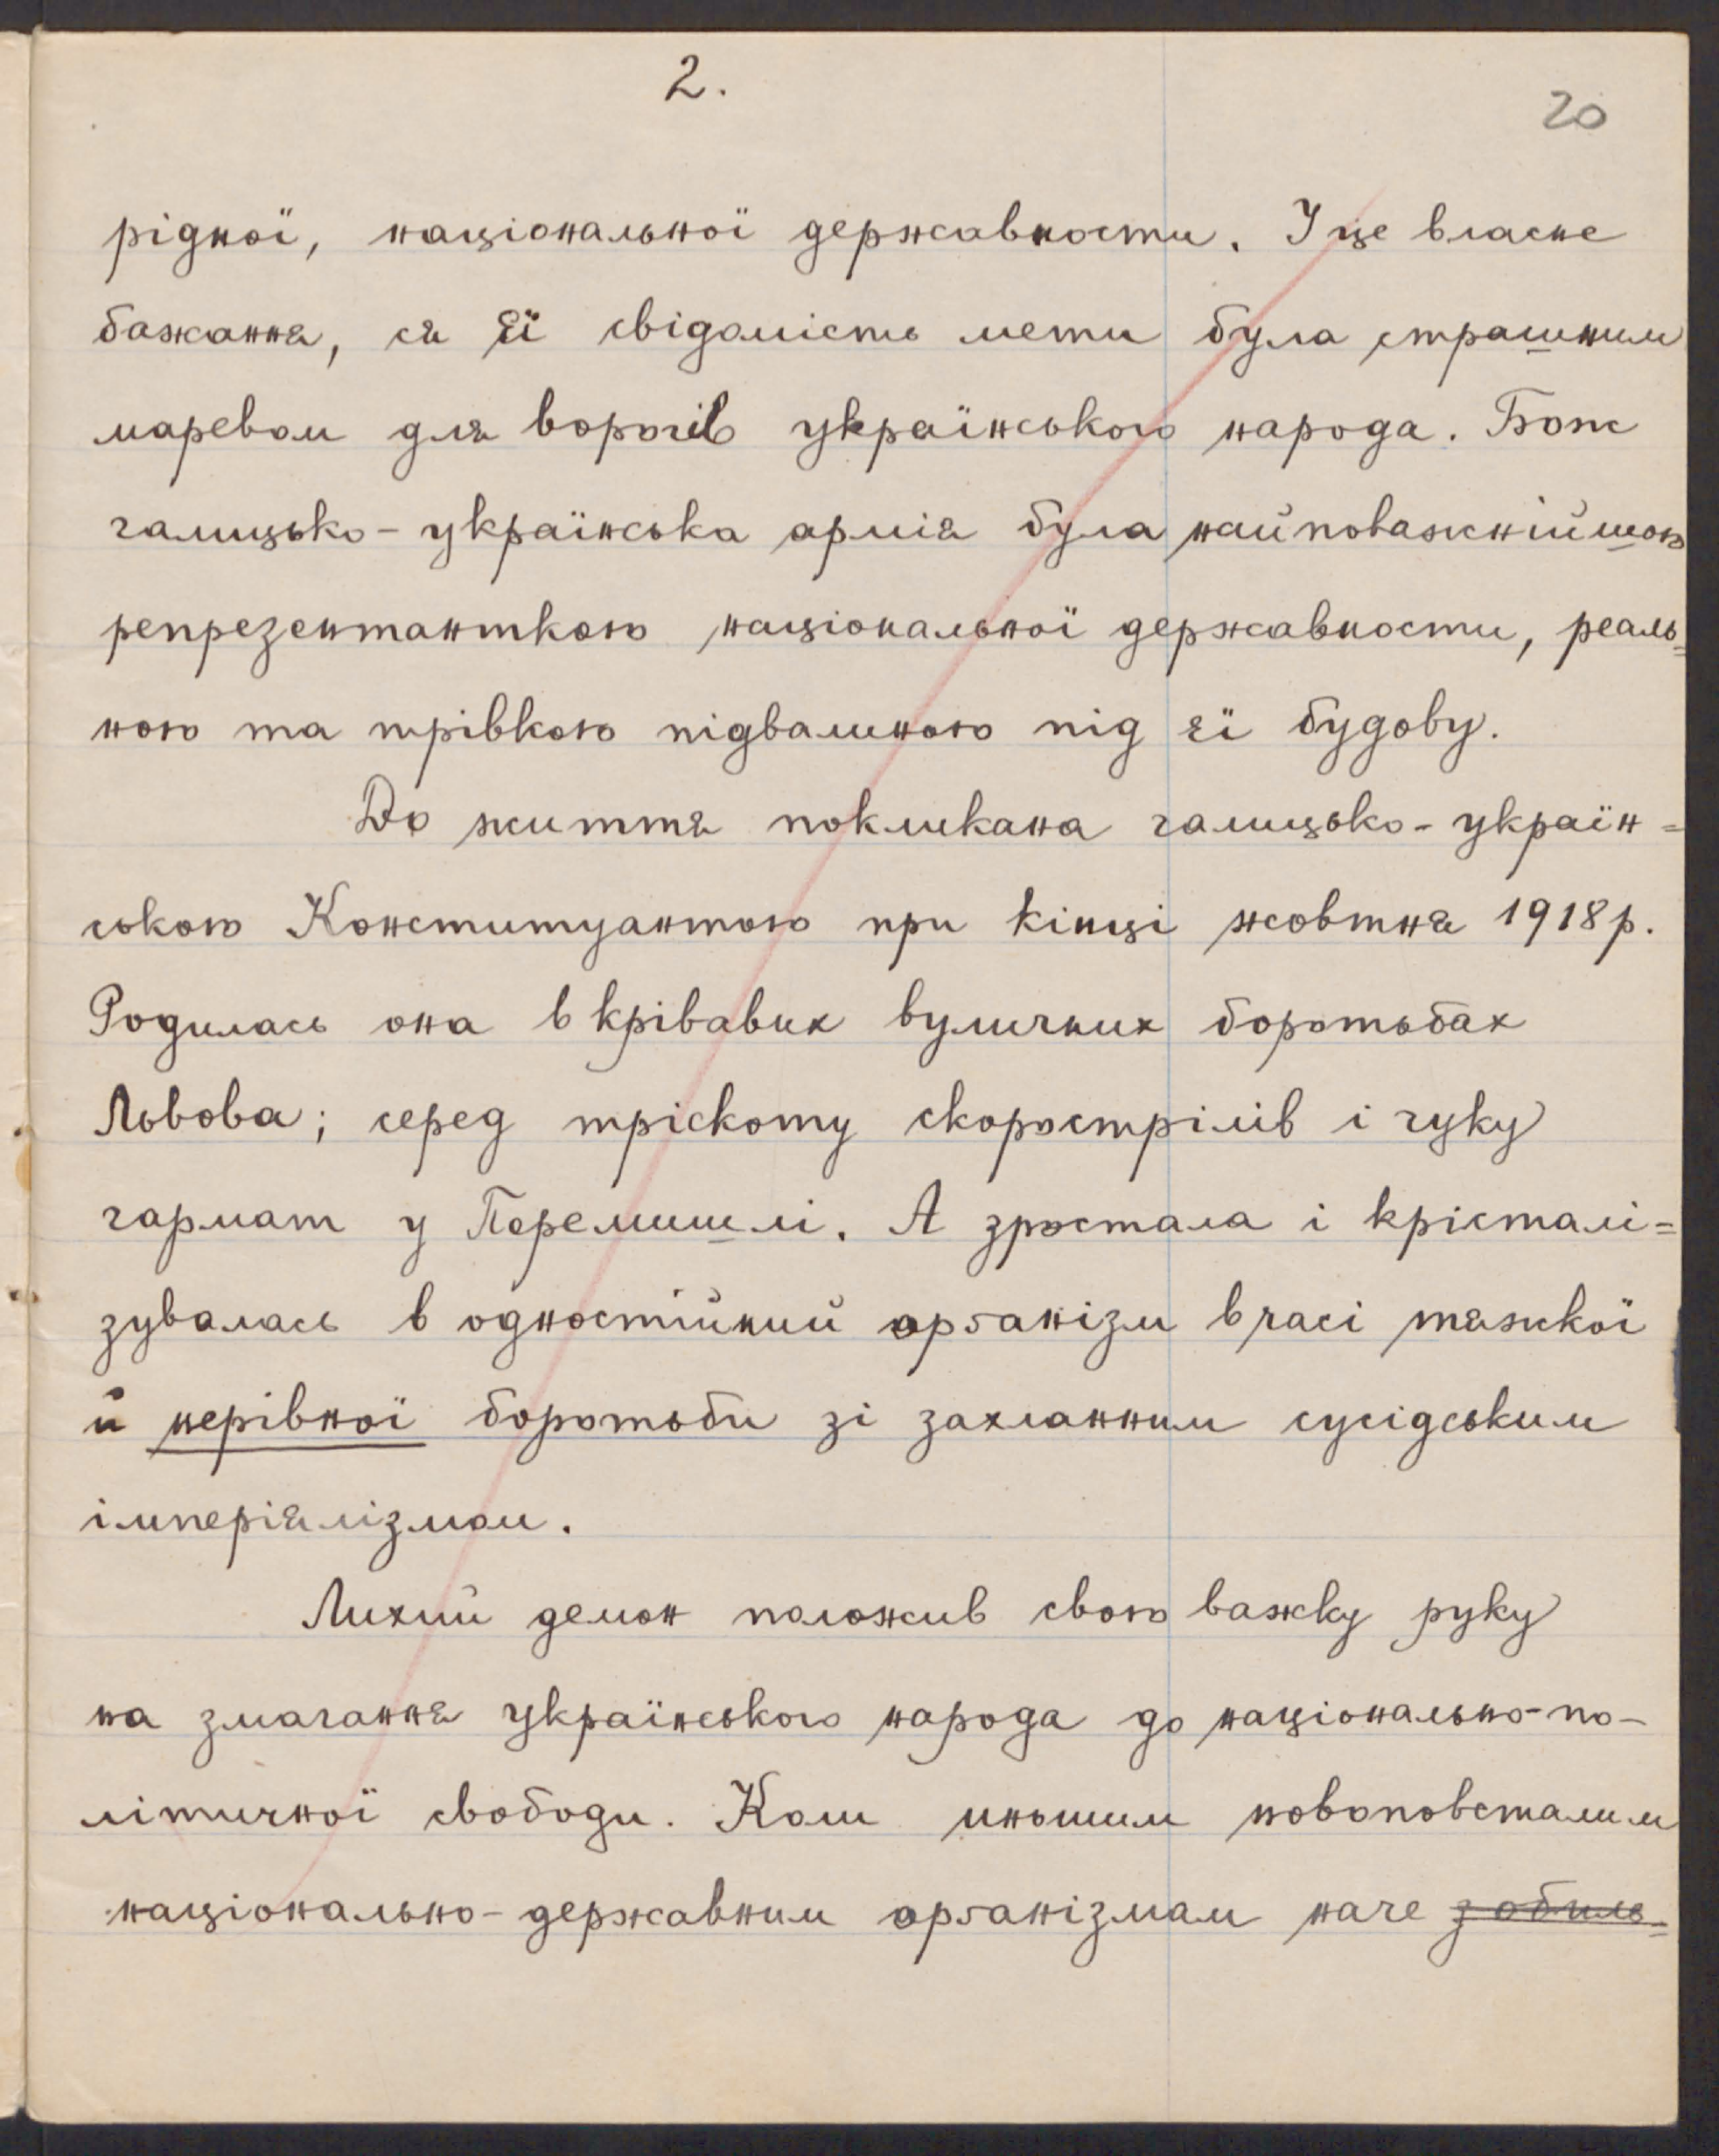 2.
20
рідної, національної державности. І це власне
бажаннє, ся її свідомість мети була страшним
маревом для ворогів українського народа. Бож
галицько-українська армія була найповажнійшою
репрезентанткою національної державности, реаль=
ною та трівкою підвалиною під її будову.
До життя покликана галицько-україн=
ською Конституантою при кінці жовтня 1918 р.
Родилась она в крівавих вуличних боротьбах
Львова; серед тріскоту скорострілів і гуку
гармат у Перемишлі. А зростала і крісталі=
зувалась в одностійний орґанізм в часі тяжкої
й нерівної боротьби зі захланним сусідським
імперіялізмом.
Лихий демон положив свою важку руку
на змагання українського народа до національно-по-
літичної свободи. Коли иньшим новоповсталим
національно-державним орґанізмам наче з обиль=